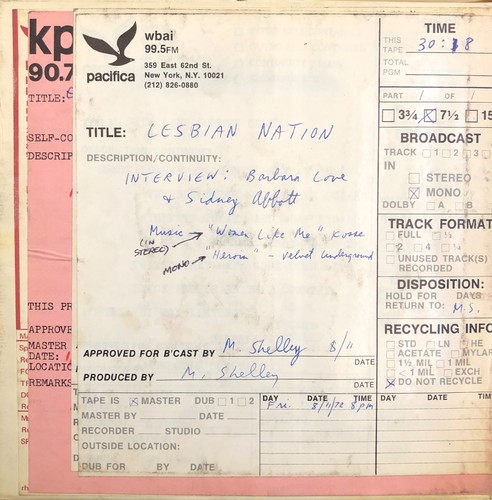 kp
90.7
TITLE:
SELF-CO
DESCRIP
THIS PR
APPROVE
MASTER
DATE:
LOCATIO
REMARKS
pacifica
wbai
99.5FM
359 East 62nd St.
New York, N.Y. 10021
(212) 826-0880
TITLE: LESBIAN NATION
DESCRIPTION/CONTINUITY:
INTERVIEW: Barbara Love
& Sidney Abbott
Music → "Women Like Me"
(IN STEREO)
MONO → "Heroin" - Velvet Underground
APPROVED FOR B'CAST BY M. Shelley 8/11
DATE
PRODUCED BY M. Shelley
DATE
TAPE IS ☒ MASTER DUB ☐ 1 ☐ 2
MASTER BY DATE
RECORDER STUDIO
OUTSIDE LOCATION:
DUB FOR BY DATE
DAY DATE TIME
Fri. 8/11/72 8pm
DAY DATE TIME
TIME
THIS TAPE 30:18
TOTAL PGM
PART 1 OF 1
☐ 3¾ ☒ 7½ ☐ 15
BROADCAST
TRACK ☐ 1 ☐ 2 ☐ 3
IN
☐ STEREO
☒ MONO
DOLBY ☐ A ☐ B
TRACK FORMAT
☐ FULL ☐ ½
☐ 2 ☐ 4 ☐ ¼
☐ UNUSED TRACK(S)
RECORDED
DISPOSITION:
HOLD FOR DAYS
RETURN TO: M.S.
RECYCLING INFO
☐ STD ☐ LN ☐ HE
☐ ACETATE ☐ MYLAR
☐ 1½ MIL ☐ 1 MIL
☐ < 1 MIL ☐ EXCH
☒ DO NOT RECYCLE